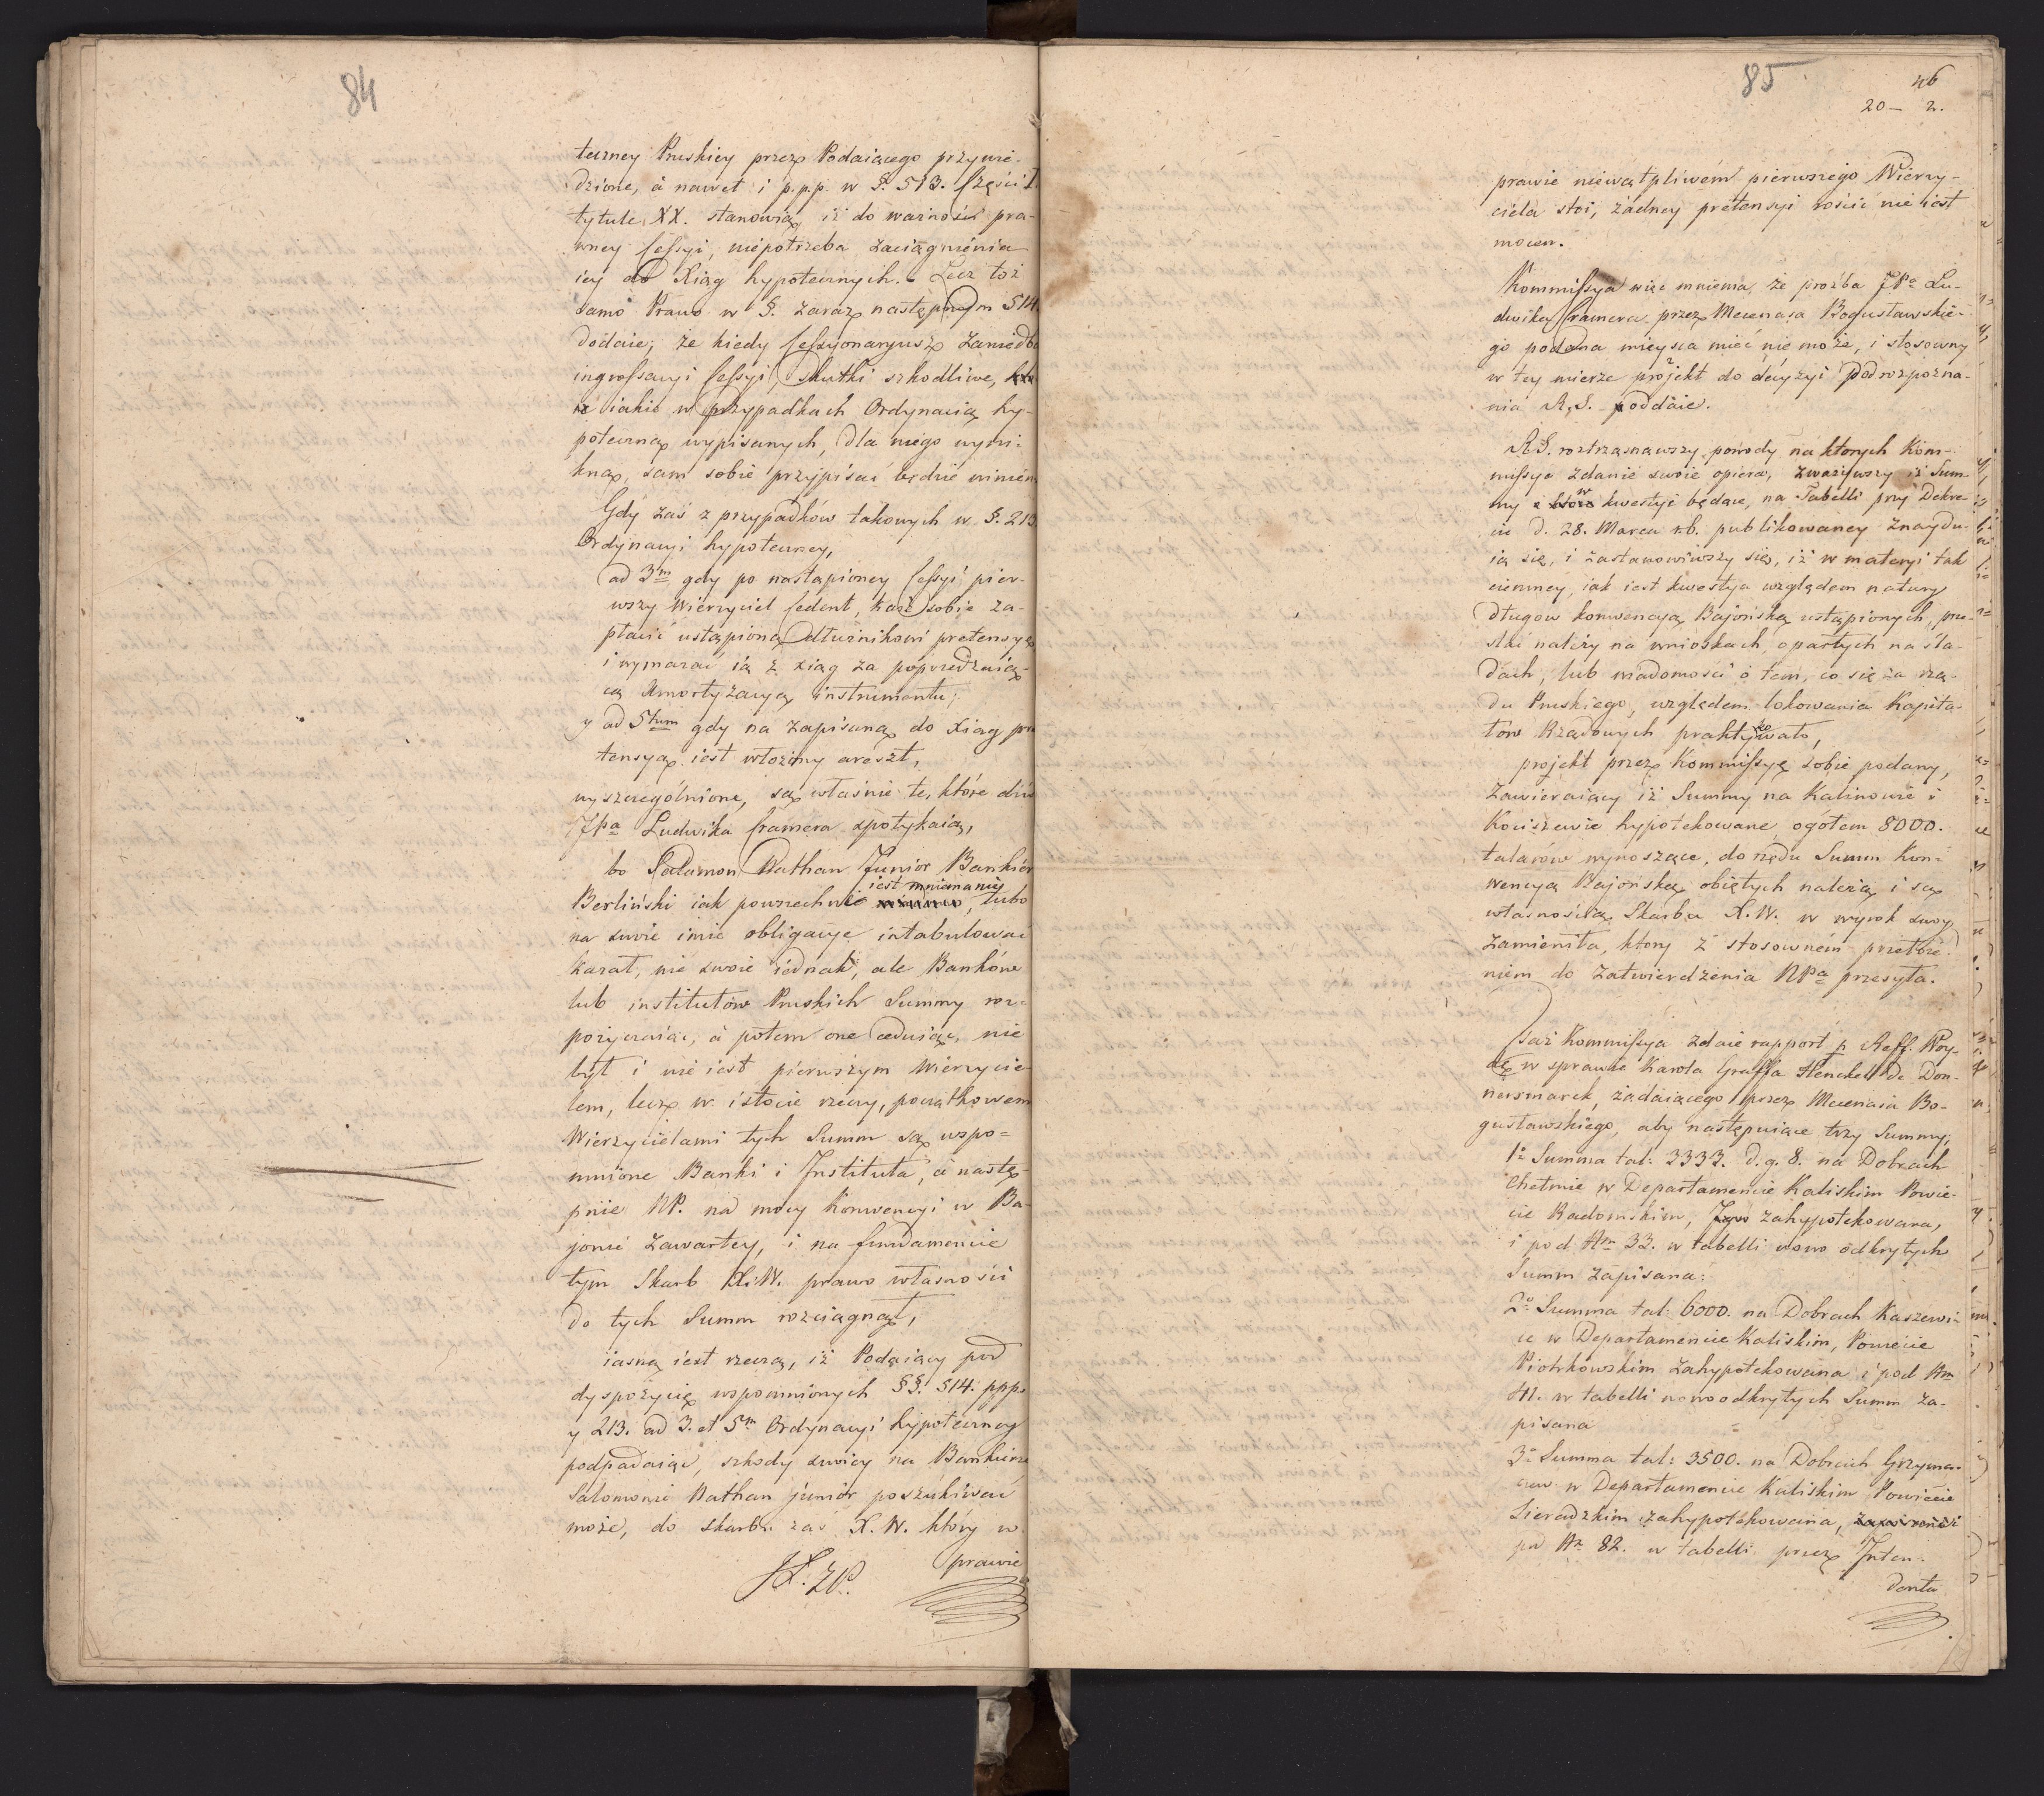 84
teczney Pruskiey przez Podaiącego przywie-
dzione, à nawet i p.p.p. w §. 513. Części I.
tytule XX. stanowią, iż do ważności pra-
wney Cessyi, niepotrzeba zaciągnienia
iey do Xiąg hypotecznych. Lecz toż
samo Prawo w §. zaraz następnym 514.
dodaie, że kiedy Cessyonaryusz zaniedba
ingrossacyi Cessyi, skutki szkodliwe,
iakie w przypadkach Ordynacią hy-
poteczną wypisanych, dla niego wyni-
kną, sam sobie przypisać będzie winien
Gdy zaś z przypadków takowych w §. 213
Ordynacyi hypoteczney,
ad 3m gdy po nastąpioney Cessyi pier-
wszy Wierzyciel Cedent, każe sobie za-
płacić ustąpioną Dłużnikowi pretensyą
i wymazać ią z xiąg za poprzedzaią-
cą Amortyzacyą instrumentu;
y ad 5tum gdy na zapisaną do Xiąg pre
tensyą iest włożony areszt,
wyszczególnione, są właśnie te, które dziś
JPa Ludwika Cramera spotykaią,
bo Salomon Nathan Junior Bankier
Berliński iak powszechnie iest mniemanie, lubo
na swoie imie obligacye intabulować
kazał, nie swoie iednak, ale Banków
lub institutów Pruskich Summy roz-
pożyczaiąc, à potem one ceduiąc, nie
był i nie iest pierwszym Wierzycie-
lem, lecz w istocie rzeczy, początkowem
Wierzycielami tych Summ są wspo=
mnione Banki i Instituta, à nastę-
pnie NP. na mocy Konwencyi w Ba-
jonie zawartey, i na fundamencie
tym Skarb X.W. prawo własności
do tych Summ rozciągnął,
iasną iest rzeczą, iż Podaiący pod
dyspozycię wspomnionych §§. 514. ppp.
y 213. ad 3. et 5m Ordynacyi hypoteczney
podpadaiąc, szkody swoiey na Bankierze
Salomonie Nathan junior poszukiwać
może, do skarbu zaś X.W. który w
prawie
85
46
20 — 2.
prawie niewątpliwém pierwszego Wierzy-
ciela stoi, żadney pretensyi rościć nie iest
mocen.
Kommissya więc mniema, że proźba JPa Lu-
dwika Cramera przez Mecenasa Bogusławskie-
go podana mieysca mieć nie może, i stosowny
w tey mierze projekt do decyzyi pod rozpozna-
nia R.S. poddaie.
R.S. roztrząsnąwszy powody na ktorych Kom-
missya zdanie swoie opiera, zważywszy iż Sum-
my w kwestyi będące, na Tabelli przy Dekre-
cie d. 28. Marca r.b. publikowaney znaydu-
ią się, i zastanowiwszy się, iż w materyi tak
ciemney, iak iest kwestya względem natury
Długow konwencyą Bajońską ustąpionych, prze-
stać należy na wnioskach, opartych na śla-
dach, lub wiadomości o tem, co się za rzą-
du Pruskiego, względem lokowania Kapita-
łów Rządowych praktykowało,
projekt przez Kommissyę sobie podany,
zawieraiący iż Summy na Kalinowie i
Kociszewie hypotekowane, ogołem 8000.
talarów wynoszące, do rzędu Summ Kon-
wencyą Bajońską obiętych należą i są
własnością Skarbu X.W. w wyrok swoy
zamieniła, ktory z stosowném przełoże-
niem do zatwierdzenia NPa przesyła.
Taż Kommissya zdaie rapport p. Reff. Woy-
dę w sprawie Karola Graffa Henckel de Don-
nersmarck, żądaiącego przez Mecenasa Bo-
gusławskiego, aby następuiące trzy Summy,
1o Summa tal: 3333. d.g. 8. na Dobrach
Chełmie w Departamencie Kaliskim Powie-
cie Radomskim, zahypotekowana,
i pod Nm 33. w tabelli nowo odkrytych
Summ zapisana:
2o Summa tal: 6000. na Dobrach Kaszewi-
ce w Departamencie Kaliskim, Powiecie
Piotrkowskim zahypotekowana i pod Nm
41. w tabelli nowo odkrytych Summ za-
pisana
3o Summa tal: 3500. na Dobrach Grzyma-
czew w Departamencie Kaliskim Powiecie
Sieradzkim zahypotekowana,
pod No 82. w tabelli przez Inten-
denta